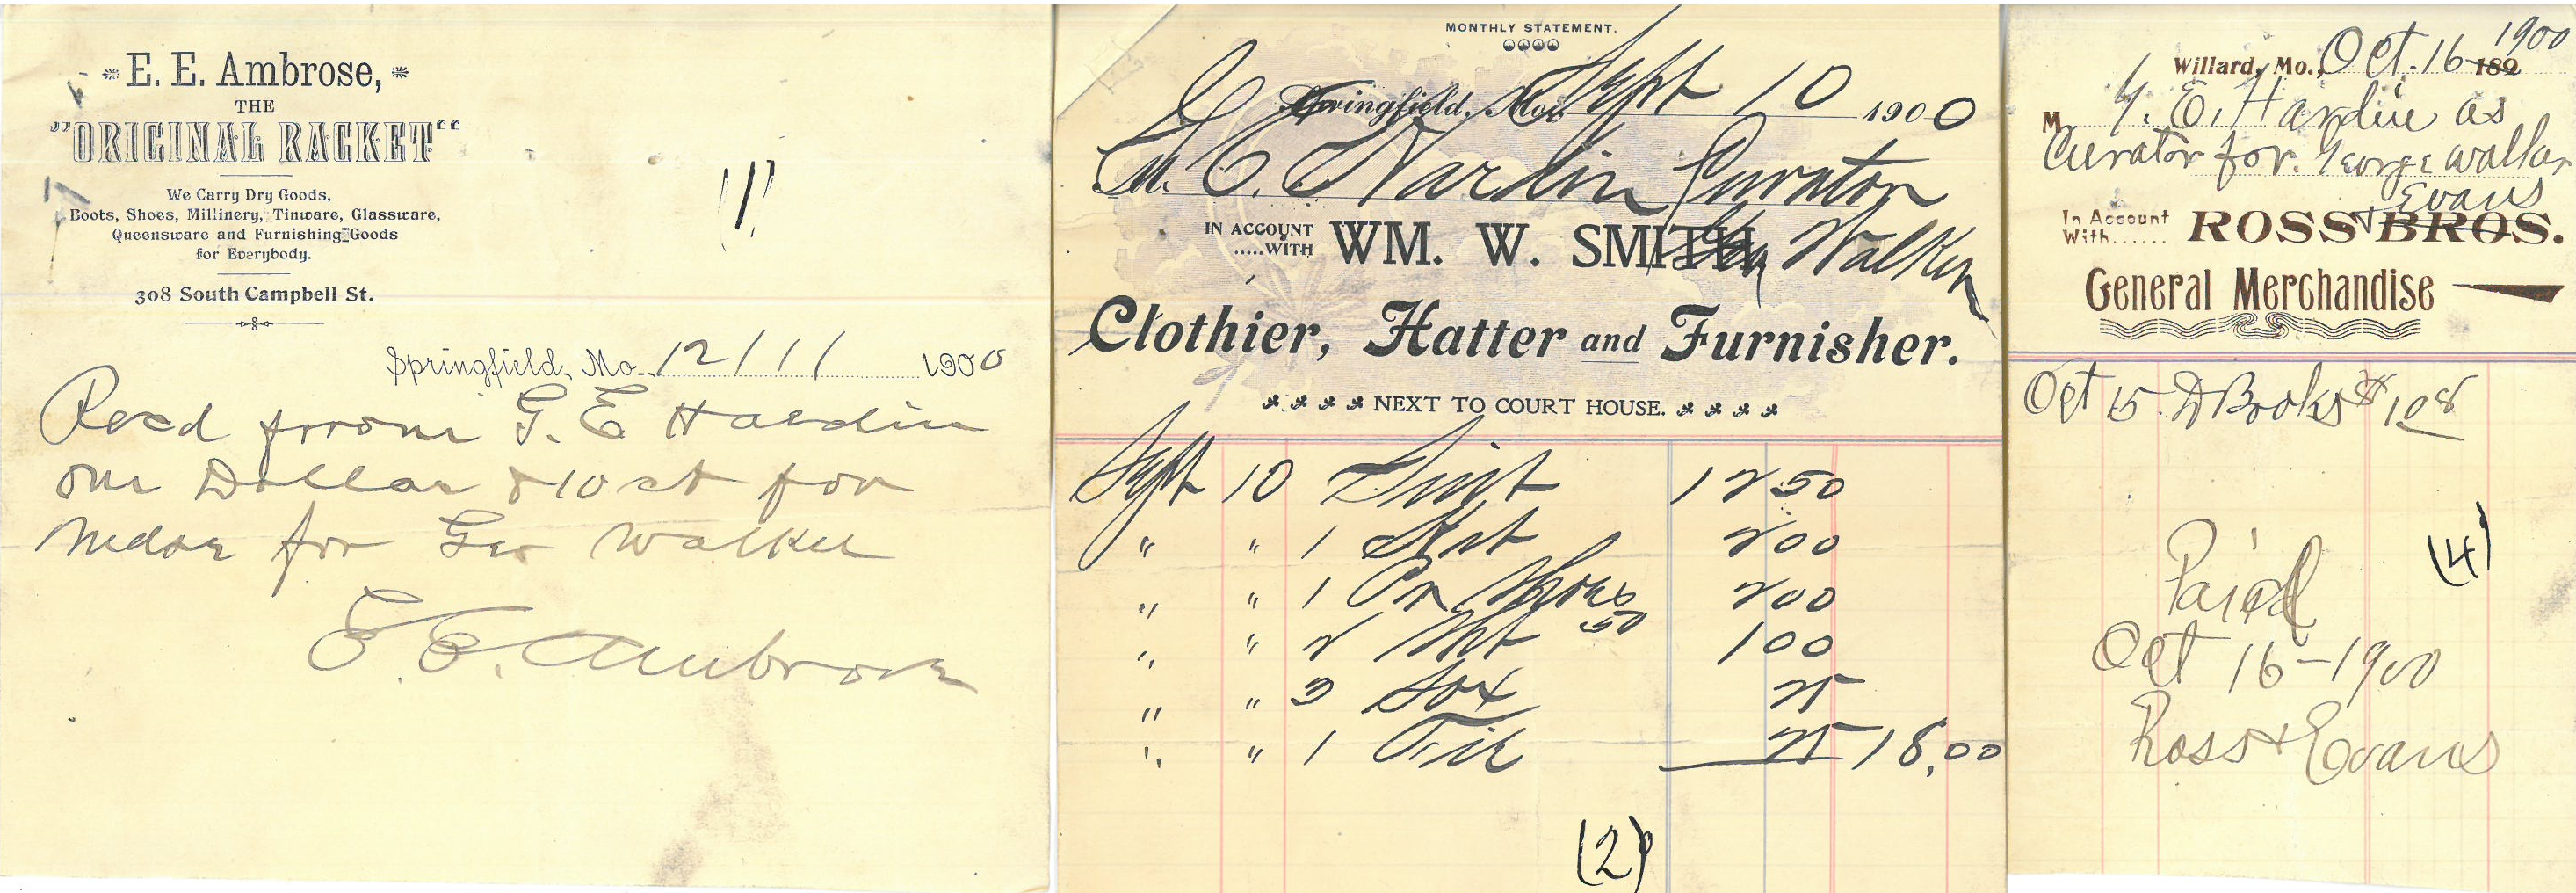 E. E. Ambrose,
THE
"ORIGINAL RACKET"
We Carry Dry Goods,
Boots, Shoes, Millinery, Tinware, Glassware,
Queensware and Furnishing Goods
for Everybody.
308 South Campbell St.
Springfield, Mo. 12/11 1900
Recd from G. E Hardin
one Dollar & 10 ct for
for Geo Walker
E. E. Ambrose
MONTHLY STATEMENT.
Springfield, Mo. Sept 10 1900
M. G. E. Hardin Curator
Geo Walker
IN ACCOUNT
.....WITH WM. W. SMITH
Clothier, Hatter and Furnisher.
NEXT TO COURT HOUSE.
Sept 10 Suit 12 50
" " 1 Hat 2 00
" " 1 Pr Shoes 2 00
" " 2 Sht 50 1 00
" " 3 Sox 25
" " 1 Tie 25 18.00
(2)
1900
Willard, Mo., Oct. 16 189
M G. E. Hardin as
Curator for George Walker
Evans
In Account
With...... ROSS & BROS.
General Merchandise
Oct 15 Books $1.08
Paid
(4)
Oct 16-1900
Ross & Evans